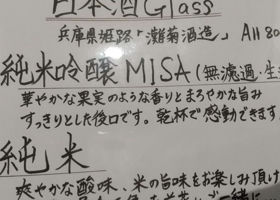 日本酒Glass
兵庫県姫路「灘菊酒造」 All 80
純米吟醸MISA(無濾過・生
華やかな果実のような香りとまろやかな旨み
すっきりとした後口です。乾杯で感動できます
純米
爽やかな酸味、米の旨味をお楽しみ頂け